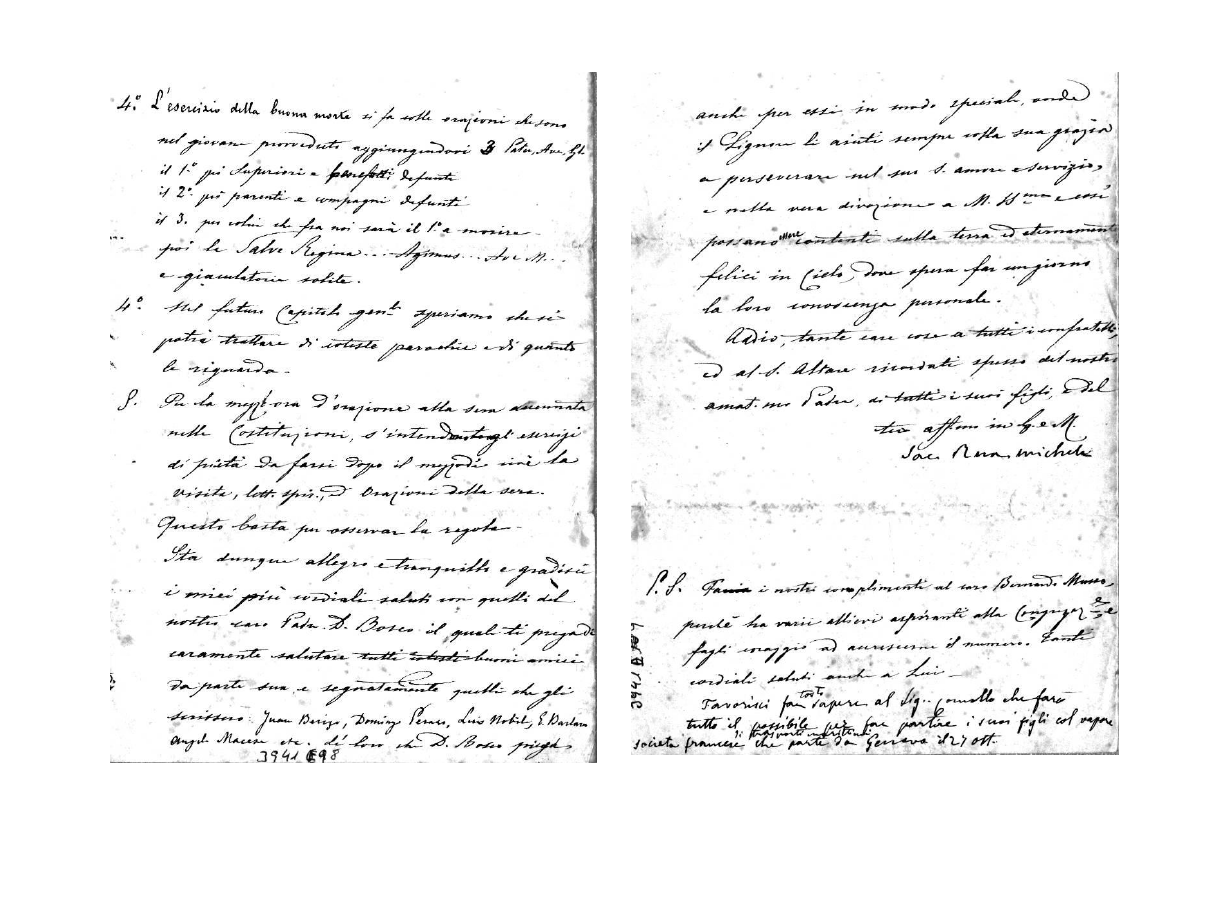 4.° L'esercizio della buona morte si fa colle orazioni che sono
nel giovane provveduto aggiungendovi 3 Pater, Ave, Gl.
il 1.° pei Superiori e defunti
il 2.° pei parenti e compagni defunti
il 3. per colui che fra noi sarà il 1.° a morire
poi la Salve Regina... Agimus... Ave M...
e giaculatorie solite.
4.° Nel futuro Capitolo gen. speriamo che si
potrà trattare di coteste parochie e di quanto
le riguarda.
5. Per la mezz'ora d'orazione alla sera accennata
nelle Costituzioni, s'intendono gli esercizi
di pietà da farsi dopo il mezzodì cioè la
visita, lett. spir., ed Orazioni della sera.
Questo basta per osservar la regola.
Sta dunque allegro e tranquillo e gradisci
i miei più cordiali saluti con quelli del
nostro caro Padre D. Bosco il quale ti prega di
caramente salutare tutti cotesti buoni amici
da parte sua e segnatamente quelli che gli
scrissero. Juan Domingo Luis E. Barbara
Angel etc. di' loro che D. Bosco prega
3941 E98
anche per essi in modo speciale, onde
il Signore li aiuti sempre colla sua grazia
a perseverare nel suo S. amore e servizio,
e nella vera divozione a M. SSma e così
possano essere contenti sulla terra ed eternamente
felici in Cielo, dove spera far un giorno
la loro conoscenza personale.
Addio, tante care cose a tutti i confratelli,
ed al S. Altare ricordati spesso del nostro
amat.mo Padre, di tutti i suoi figli, e del
tuo affmo in G. e M.
Sac. Rua Michele
P.S. i nostri complimenti al caro Bernardo Musso,
perchè ha varii allievi aspiranti alla Congregaz.e e
fagli coraggio ad accrescerne il numero. Tanti
cordiali saluti anche a Lui
Favorisci far tosto sapere al Sig. che farò
tutto il possibile per far partire i suoi figli col vapore
di trasporti marittimi
società francese che parte da Genova il 27 ott.